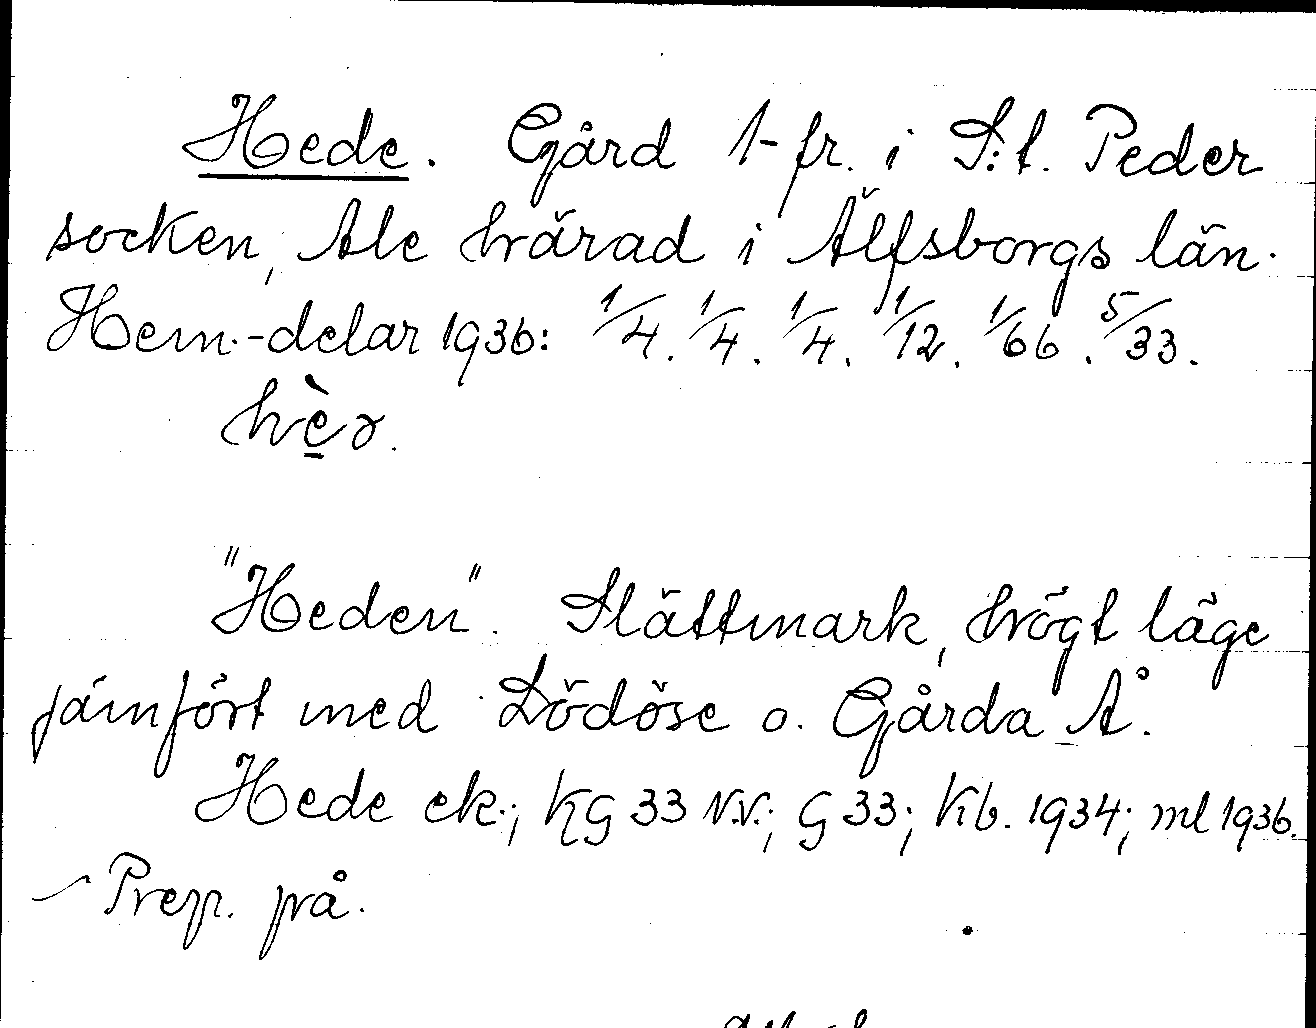 Hede. Gård 1-fr. i S:t. Peder
socken, Ale härad i Älfsborgs län.
Hem.-delar 1936: 1/4. 1/4. 1/4. 1/12. 1/66. 5/33.
"Heden". Slättmark, högt läge
jämfört med Lödöse o. Gårda Å.
Hede ek.; KG 33 N.V.; G 33; Kb. 1934; ml 1936.
Prep. på.